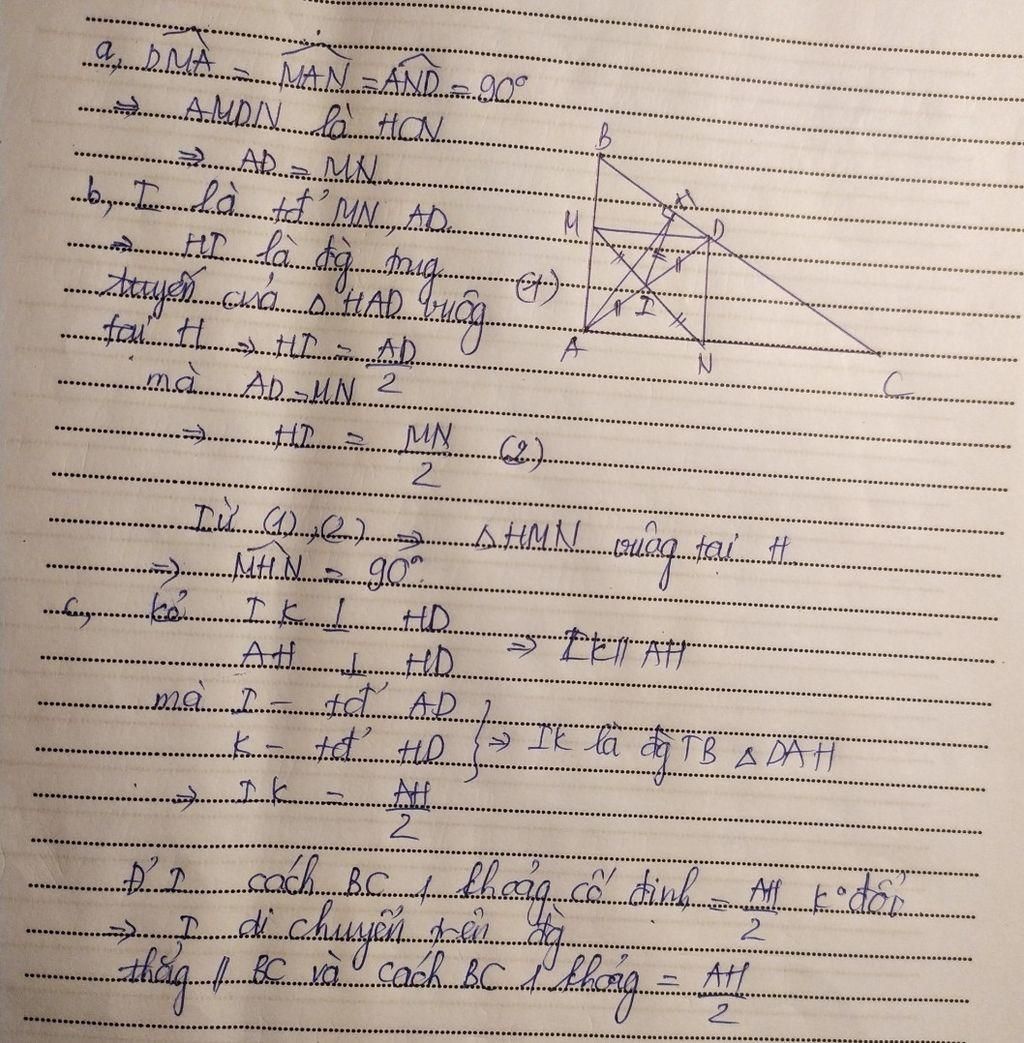 a, DMA = MAN = AND = 90°
⇒ AMDN là HCN
⇒ AD = MN.
b, I là tđ' MN, AD.
⇒ HI là đg trug (1)
tuyến của △HAD vuôg
tại H ⇒ HI = AD/2
mà AD = MN
⇒ HI = MN/2 (2)
Từ (1), (2) ⇒ △HMN vuôg tại H.
⇒ MHN = 90°.
c, kẻ IK ⊥ HD
AH ⊥ HD ⇒ IK // AH
mà I - tđ' AD
K - tđ' HD } ⇒ IK là đg TB △DAH
⇒ IK = AH/2
Đ' I cách BC 1 khoảg cố định = AH/2 k° đổi.
⇒ I di chuyển trên đg
thẳg // BC và cách BC 1 khoảg = AH/2
B
M
D
I
A
N
C